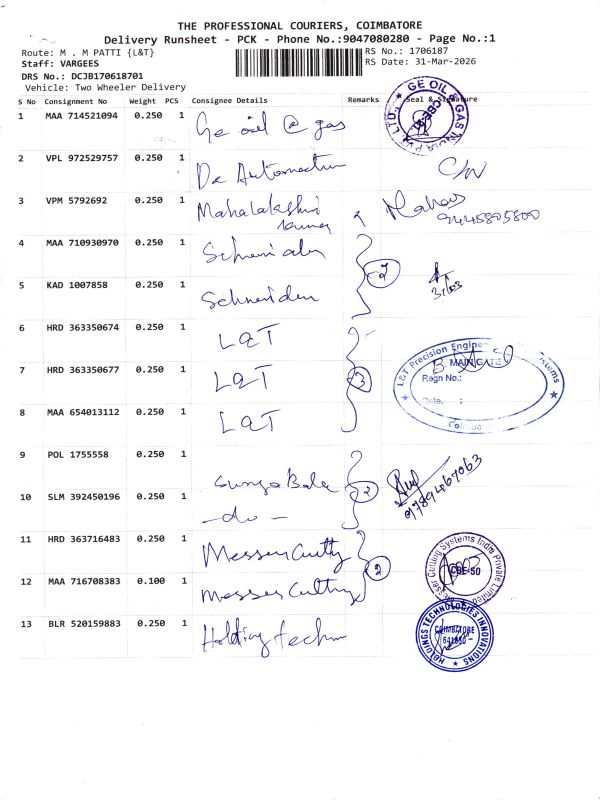 THE PROFESSIONAL COURIERS, COIMBATORE
Delivery Runsheet - PCK - Phone No.:9047080280 - Page No.:1
Route: M . M PATTI {L&T}
RS No.: 1706187
Staff: VARGEES
RS Date: 31-Mar-2026
DRS No.: DCJB170618701
Vehicle: Two Wheeler Delivery
S No Consignment No Weight PCS Consignee Details Remarks Seal & Signature
1 MAA 714521094 0.250 1 Ge oil @ gas
GE OIL & GAS INDIA PVT LTD.
2 VPL 972529757 0.250 1 De
3 VPM 5792692 0.250 1 Mahalakshmi
9445805800
4 MAA 710930970 0.250 1
2
5 KAD 1007858 0.250 1 Schneider
6 HRD 363350674 0.250 1 L&T
7 HRD 363350677 0.250 1 L&T
3
L&T Precision Engineering Systems
MAIN GATE
Regn No.:
Date. :
Coimbatore
8 MAA 654013112 0.250 1 L&T
9 POL 1755558 0.250 1
2
9789467063
10 SLM 392450196 0.250 1 -do-
11 HRD 363716483 0.250 1 Messer Cutting
2
Messer Cutting Systems India Private Limited
CBE-50
12 MAA 716708383 0.100 1 Messer Cutting
13 BLR 520159883 0.250 1 Holding techn
HOLDINGS TECHNOLOGIES INNOVATIONS
COIMBATORE